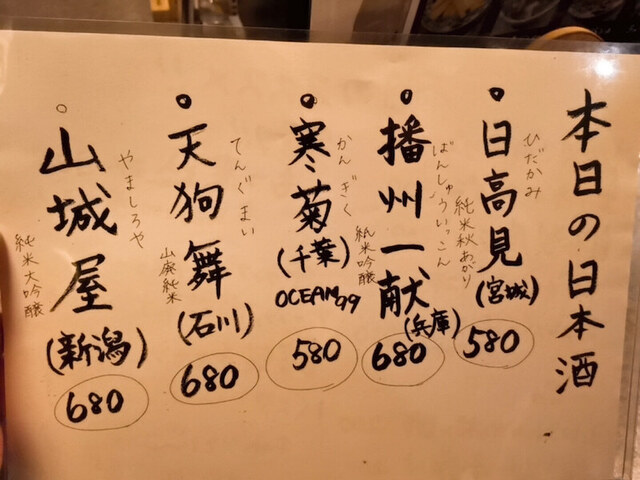 本日の日本酒
日高見
ひだかみ
純米秋あがり
(宮城)
580
播州一献
ばんしゅういっこん
純米吟醸
(兵庫)
680
寒菊
かんぎく
(千葉)
OCEAN99
580
天狗舞
てんぐまい
山廃純米
(石川)
680
山城屋
やましろや
純米大吟醸
(新潟)
680